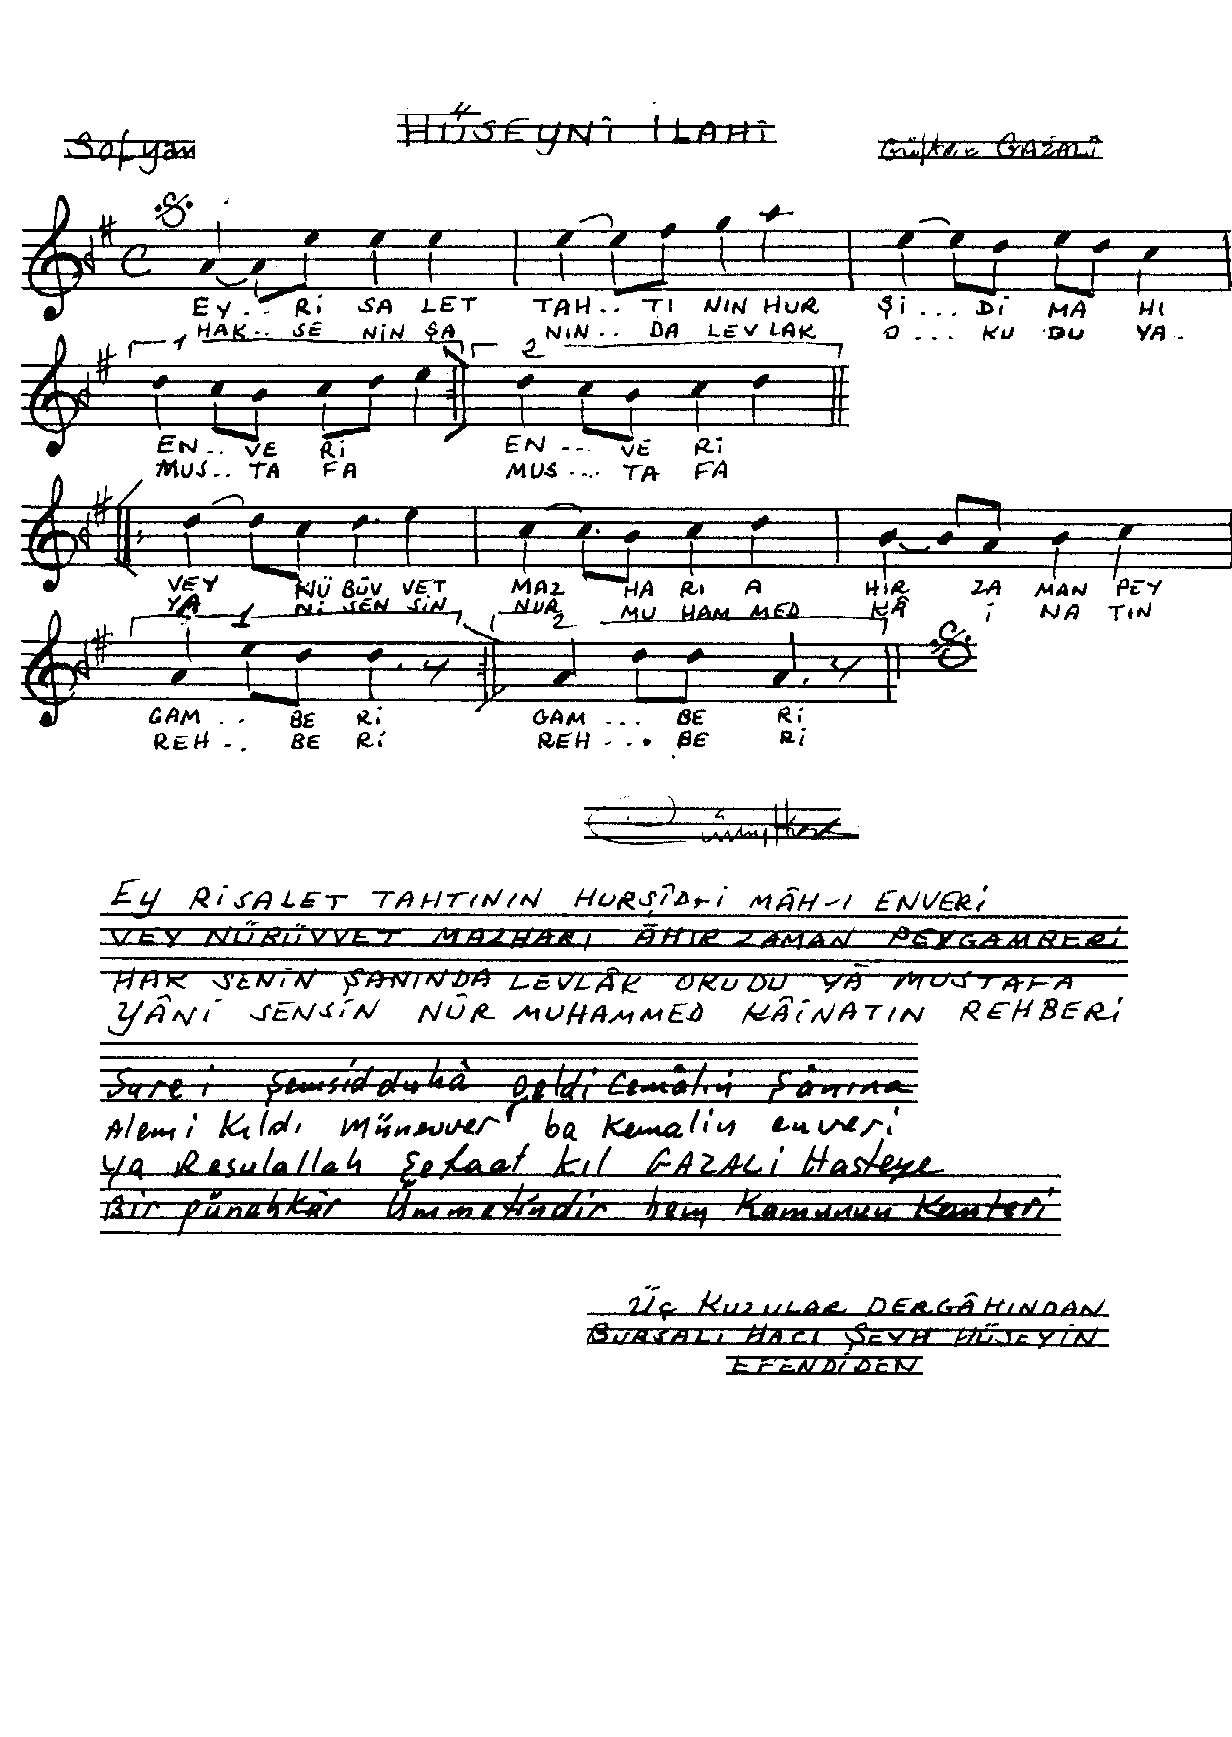 HÜSEYNÎ İLAHİ
Sofyan
Güfte: GAZALÎ
EY.. Rİ SA LET TAH.. TI NIN HUR Şİ... Dİ MA HI
HAK.. SE NİN ŞA NIN.. DA LEV LAK O... KU DU YA.
1 2
EN.. VE Rİ EN... VE Rİ
MUS.. TA FA MUS... TA FA
VEY NÜ BÜV VET MAZ HA RI A HIR ZA MAN PEY
YA Nİ SEN SİN NUR MU HAM MED KÂ İ NA TIN
1 2
GAM.. BE Rİ GAM... BE Rİ
REH.. BE Rİ REH... BE Rİ
EY RİSALET TAHTININ HURŞÎD-İ MÂH-I ENVERİ
VEY NÜBÜVVET MAZHARI ÂHIR ZAMAN PEYGAMBERİ
HAK SENİN ŞANINDA LEVLÂK OKUDU YÂ MUSTAFA
YÂNİ SENSİN NÛR MUHAMMED KÂİNATIN REHBERİ
Sure i Şemsidduhâ geldi Cemâlin Şânına
Alemi Kıldı Münevver ba Kemalin enveri
Ya Resulallah Şefaat Kıl GAZALİ Hasteye
Bir günahkâr Ümmetindir hem Kamunun Kemteri
ÜÇ KUZULAR DERGÂHINDAN
BURSALI HACI ŞEYH HÜSEYİN
EFENDİDEN